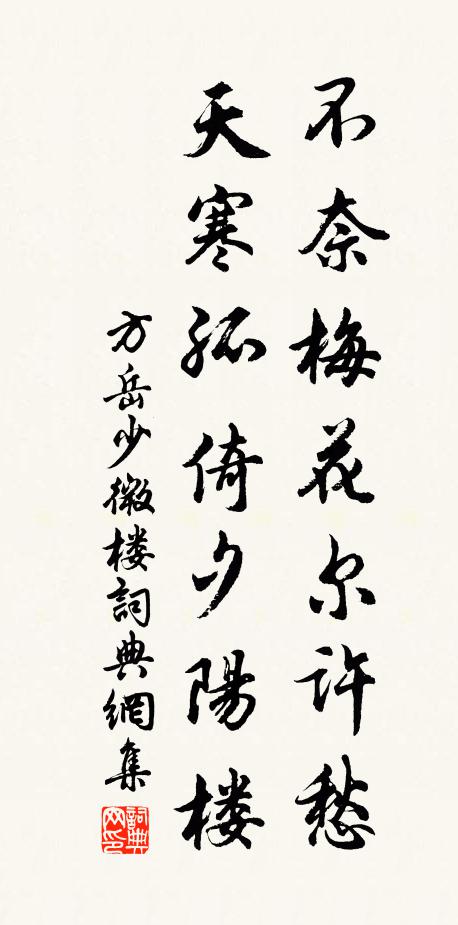 不奈梅花尔許愁
天寒孤倚夕陽楼
方岳少微楼詞典網集
詞典网印